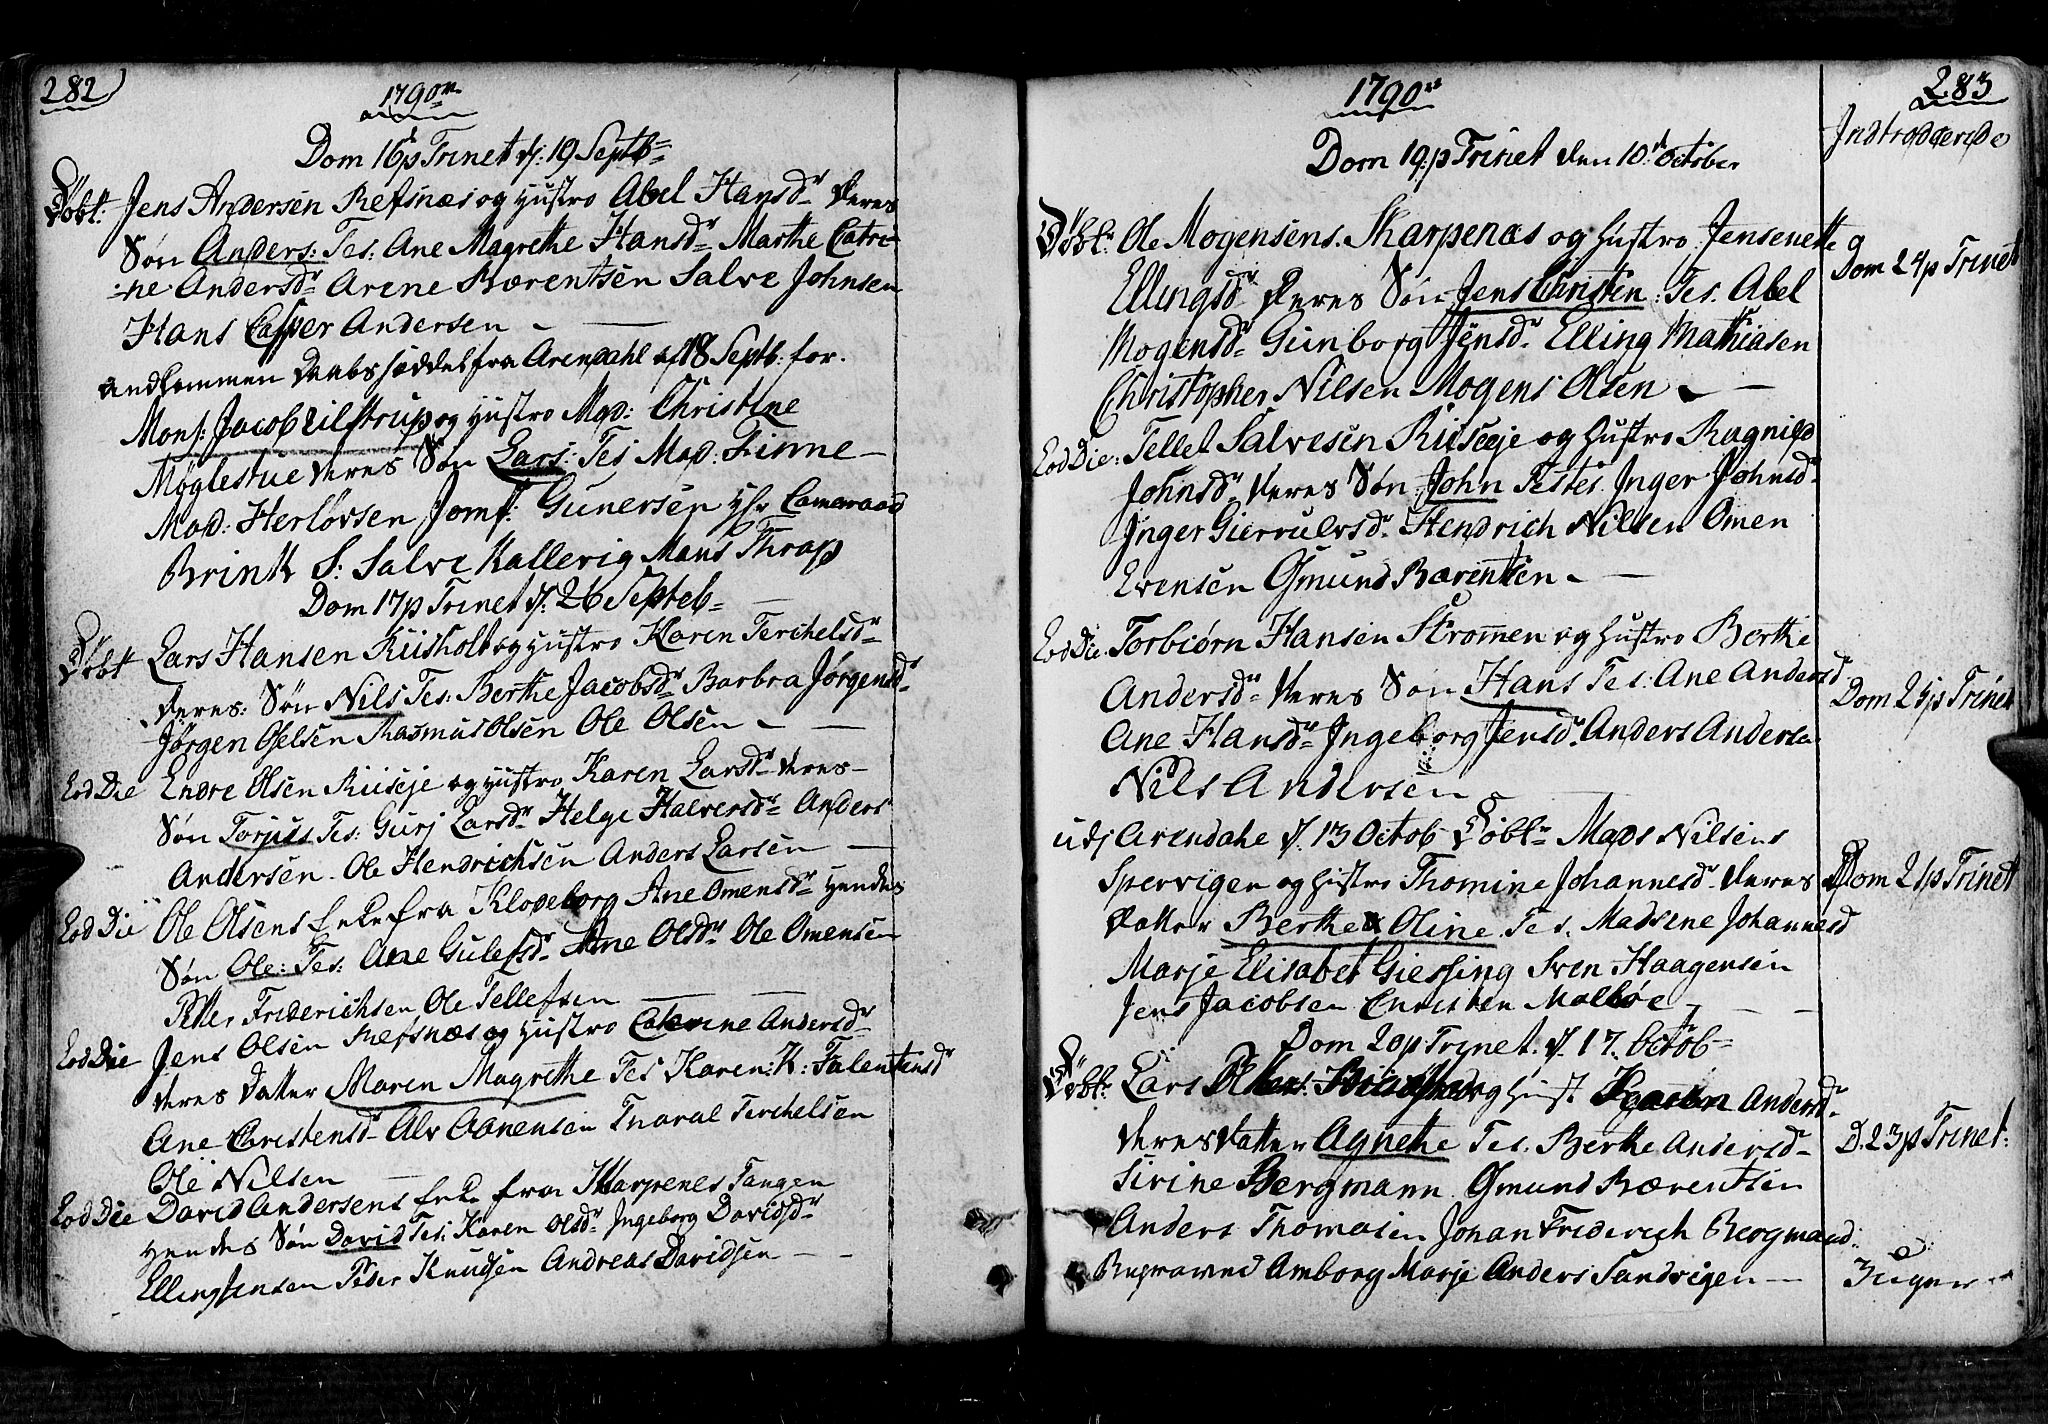 282
1790
Dom 16 p Trinet d: 19 Septb
Døbt: Jens Andersen Refsnæs og Hustro Abel Hansd deres
Søn Anders: Tes: Ane Magrethe Hansd Marthe Catri-
-ne Andersd Arene Bærentsen Salve Johnsen
Hans Casper Andersen
andkommen Daabs seddel fra Arendahl af 18 Septb: for
Mons: Jacob Zilstrup og Hustro Mad: Christine
Møglestue deres Søn Lars: Tes Mad: Finne
Mad: Herløvsen Jomf: Gunersen Hr Cameraad
Brink S: Salve Kallevig Mons Thrap
Dom 17 p Trinet d: 26 Septeb
Døbt Lars Hansen Riisholt og Hustro Karen Terchelsd
deres: Søn Nils Tes: Berthe Jacobsd Barbra Jørgensd
Jørgen Olsen Rasmus Olsen Ole Olsen
Eod Die Endre Olsen Riiseje og Hustro Karen Larsd deres
Søn Torjus Tes: Gurj Larsd Helge Halversd Anders
Andersen Ole Hendrichsen Anders Larsen
Eod Die Ole Olsens Enke fra Klodeborg Ane Omensd Hendes
Søn Ole: Tes: Ane Gulefsd Ane Olsd Ole Omensen
Peter Friderichsen Ole Tellefsen
Eod Die Jens Olsen Refsnæs og Hustro Catrine Andersd
deres Datter Maren Magrethe Tes Karen: K: Falentinsd
Ane Christensd Alv Aanensen Tharal Terchelsen
Ole Nilsen
Eod Die David Andersens Enke fra Skarpenes Tangen
Hendes Søn David Tes: Karen Olsd Ingeborg Davidsd
Elling Jensen Peder Knudsen Andreas Davidsen
1790
283
Indtrædderede
Dom 19 p Trinet den 10 October
Døbt: Ole Mogensens Skarpenæs og Hustro Jensenette
Dom 24 p Trinet
Ellingsd deres Søn Jens Christen: Tes. Abel
Mogensd Gunborg Jensd Elling Mathiasen
Christopher Nilsen Mogens Olsen
Eod Die: Tellef Salvesen Riiseeje og Hustro Ragnild
Johnsd deres Søn John Testes Inger Johnsd
Inger Gierrulvsd Hendrich Nilsen Omen
Evensen Osmund Bærentsen
Eod Die Torbiørn Hansen Strømmen og Hustro Berthe
Andersd deres Søn Hans Tes: Ane Andersd
Dom 25 p Trinet
Ane Hansd Ingeborg Jensd Anders Anders
Nils Andersen
udj Arendahl d. 13 Octob Døbt Mads Nilsens
Spervigen og Hustro Thomine Johannesd deres
Dom 21 p Trinet
Datter Berthe Oline Tes. Madsene Johannesd
Marje Elisabet Giessing Sven Haagensen
Jens Jacobsen Christen Malbøe
Dom 20 p Trinet d. 17 Octob
Døbt: Lars og Hust Karen Andersd
deres Datter Agnethe Tes. Berthe Andersd
D. 23 p Trinet:
Sirine Bergmann Osmund Bærentsen
Anders Thomasen Johan Friderich Bergmand
Amborg Marje Anders Sandvigen